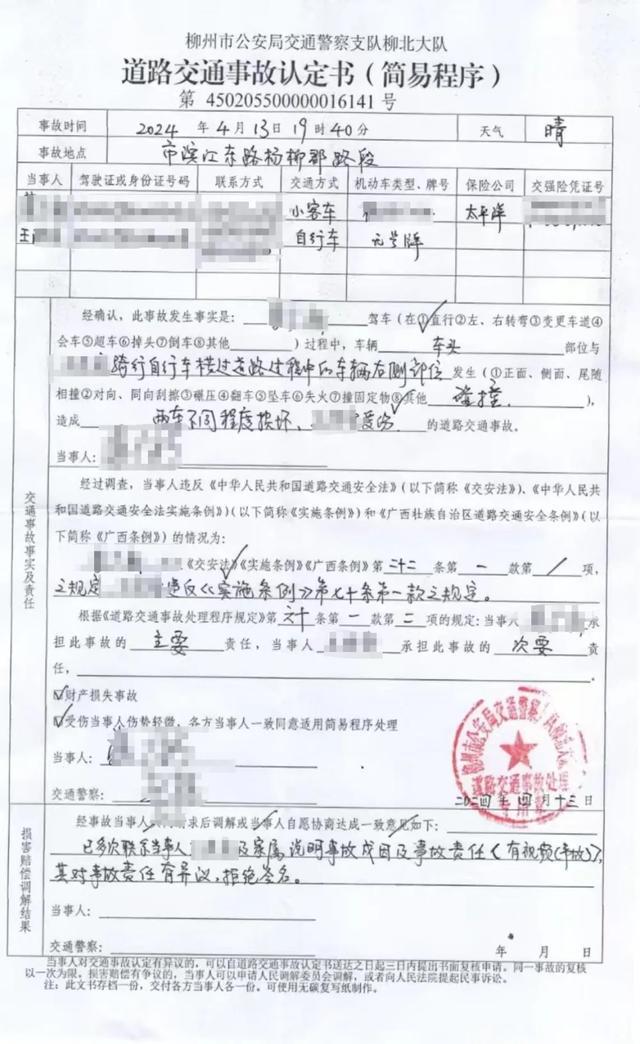 柳州市公安局交通警察支队柳北大队
道路交通事故认定书（简易程序）
第 450205500000016141 号
事故时间 2024 年 4 月 13 日 19 时 40 分 天气 晴
事故地点 市滨江东路杨柳郡路段
当事人 驾驶证或身份证号码 联系方式 交通方式 机动车类型、牌号 保险公司 交强险凭证号
小客车 太平洋
王 自行车 无号牌
经确认，此事故发生事实是： 驾车（在①直行②左、右转弯③变更车道④
会车⑤超车⑥掉头⑦倒车⑧其他 ）过程中，车辆 车头 部位与
骑行自行车横过道路过程中的车辆左侧部位 发生（①正面、侧面、尾随
相撞②对向、同向刮擦③碾压④翻车⑤坠车⑥失火⑦撞固定物⑧其他 碰撞 ），
造成 两车不同程度损坏、 受伤 的道路交通事故。
当事人：
交通事故事实及责任
经过调查，当事人违反《中华人民共和国道路交通安全法》（以下简称《交安法》）、《中华人民共
和国道路交通安全法实施条例》）（以下简称《实施条例》）和《广西壮族自治区道路交通安全条例》（以
下简称《广西条例》）的情况为：
《交安法》《实施条例》《广西条例》第 二十二 条第 一 款第 / 项，
之规定 违反《实施条例》第七十条第一款之规定。
根据《道路交通事故处理程序规定》第 六十 条第 一 款第 二 项的规定：当事人 承
担此事故的 主要 责任，当事人 承担此事故的 次要 责
任，
☑财产损失事故
☑受伤当事人伤势轻微，各方当事人一致同意适用简易程序处理
当事人：
交通警察：
二〇二四年四月十三日
柳州市公安局交通警察支队柳北大队
道路交通事故处理
专用章
损害赔偿调解结果
经事故当事人 请求后调解或当事人自愿协商达成一致意见如下：
已多次联系当事人 及家属，说明事故成因及事故责任（有视频(事故)），
其对事故责任有异议，拒绝签名。
当事人：
交通警察： 年 月 日
当事人对交通事故认定有异议的，可以自道路交通事故认定书送达之日起三日内提出书面复核申请。同一事故的复核
以一次为限，损害赔偿有争议的，当事人可以申请人民调解委员会调解，或者向人民法院提起民事诉讼。
注：此文书存档一份，交付各方当事人各一份，可使用无碳复写纸制作。